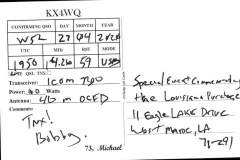 KX4WQ
CONFIRMING QSO DAY MONTH YEAR
WS2 27 04
UTC MHz RST MODE
1950 14.26 59 USB
Transceiver: Icom 7300
Power: Watts
Antenna: 40 m OCFD
Comments:
Tnx!
Bobby.
73, Michael
Special Event Commemorating
the Louisiana Purchase
11 Eagle LAKE DRIVE
WEST MONROE, LA
71291